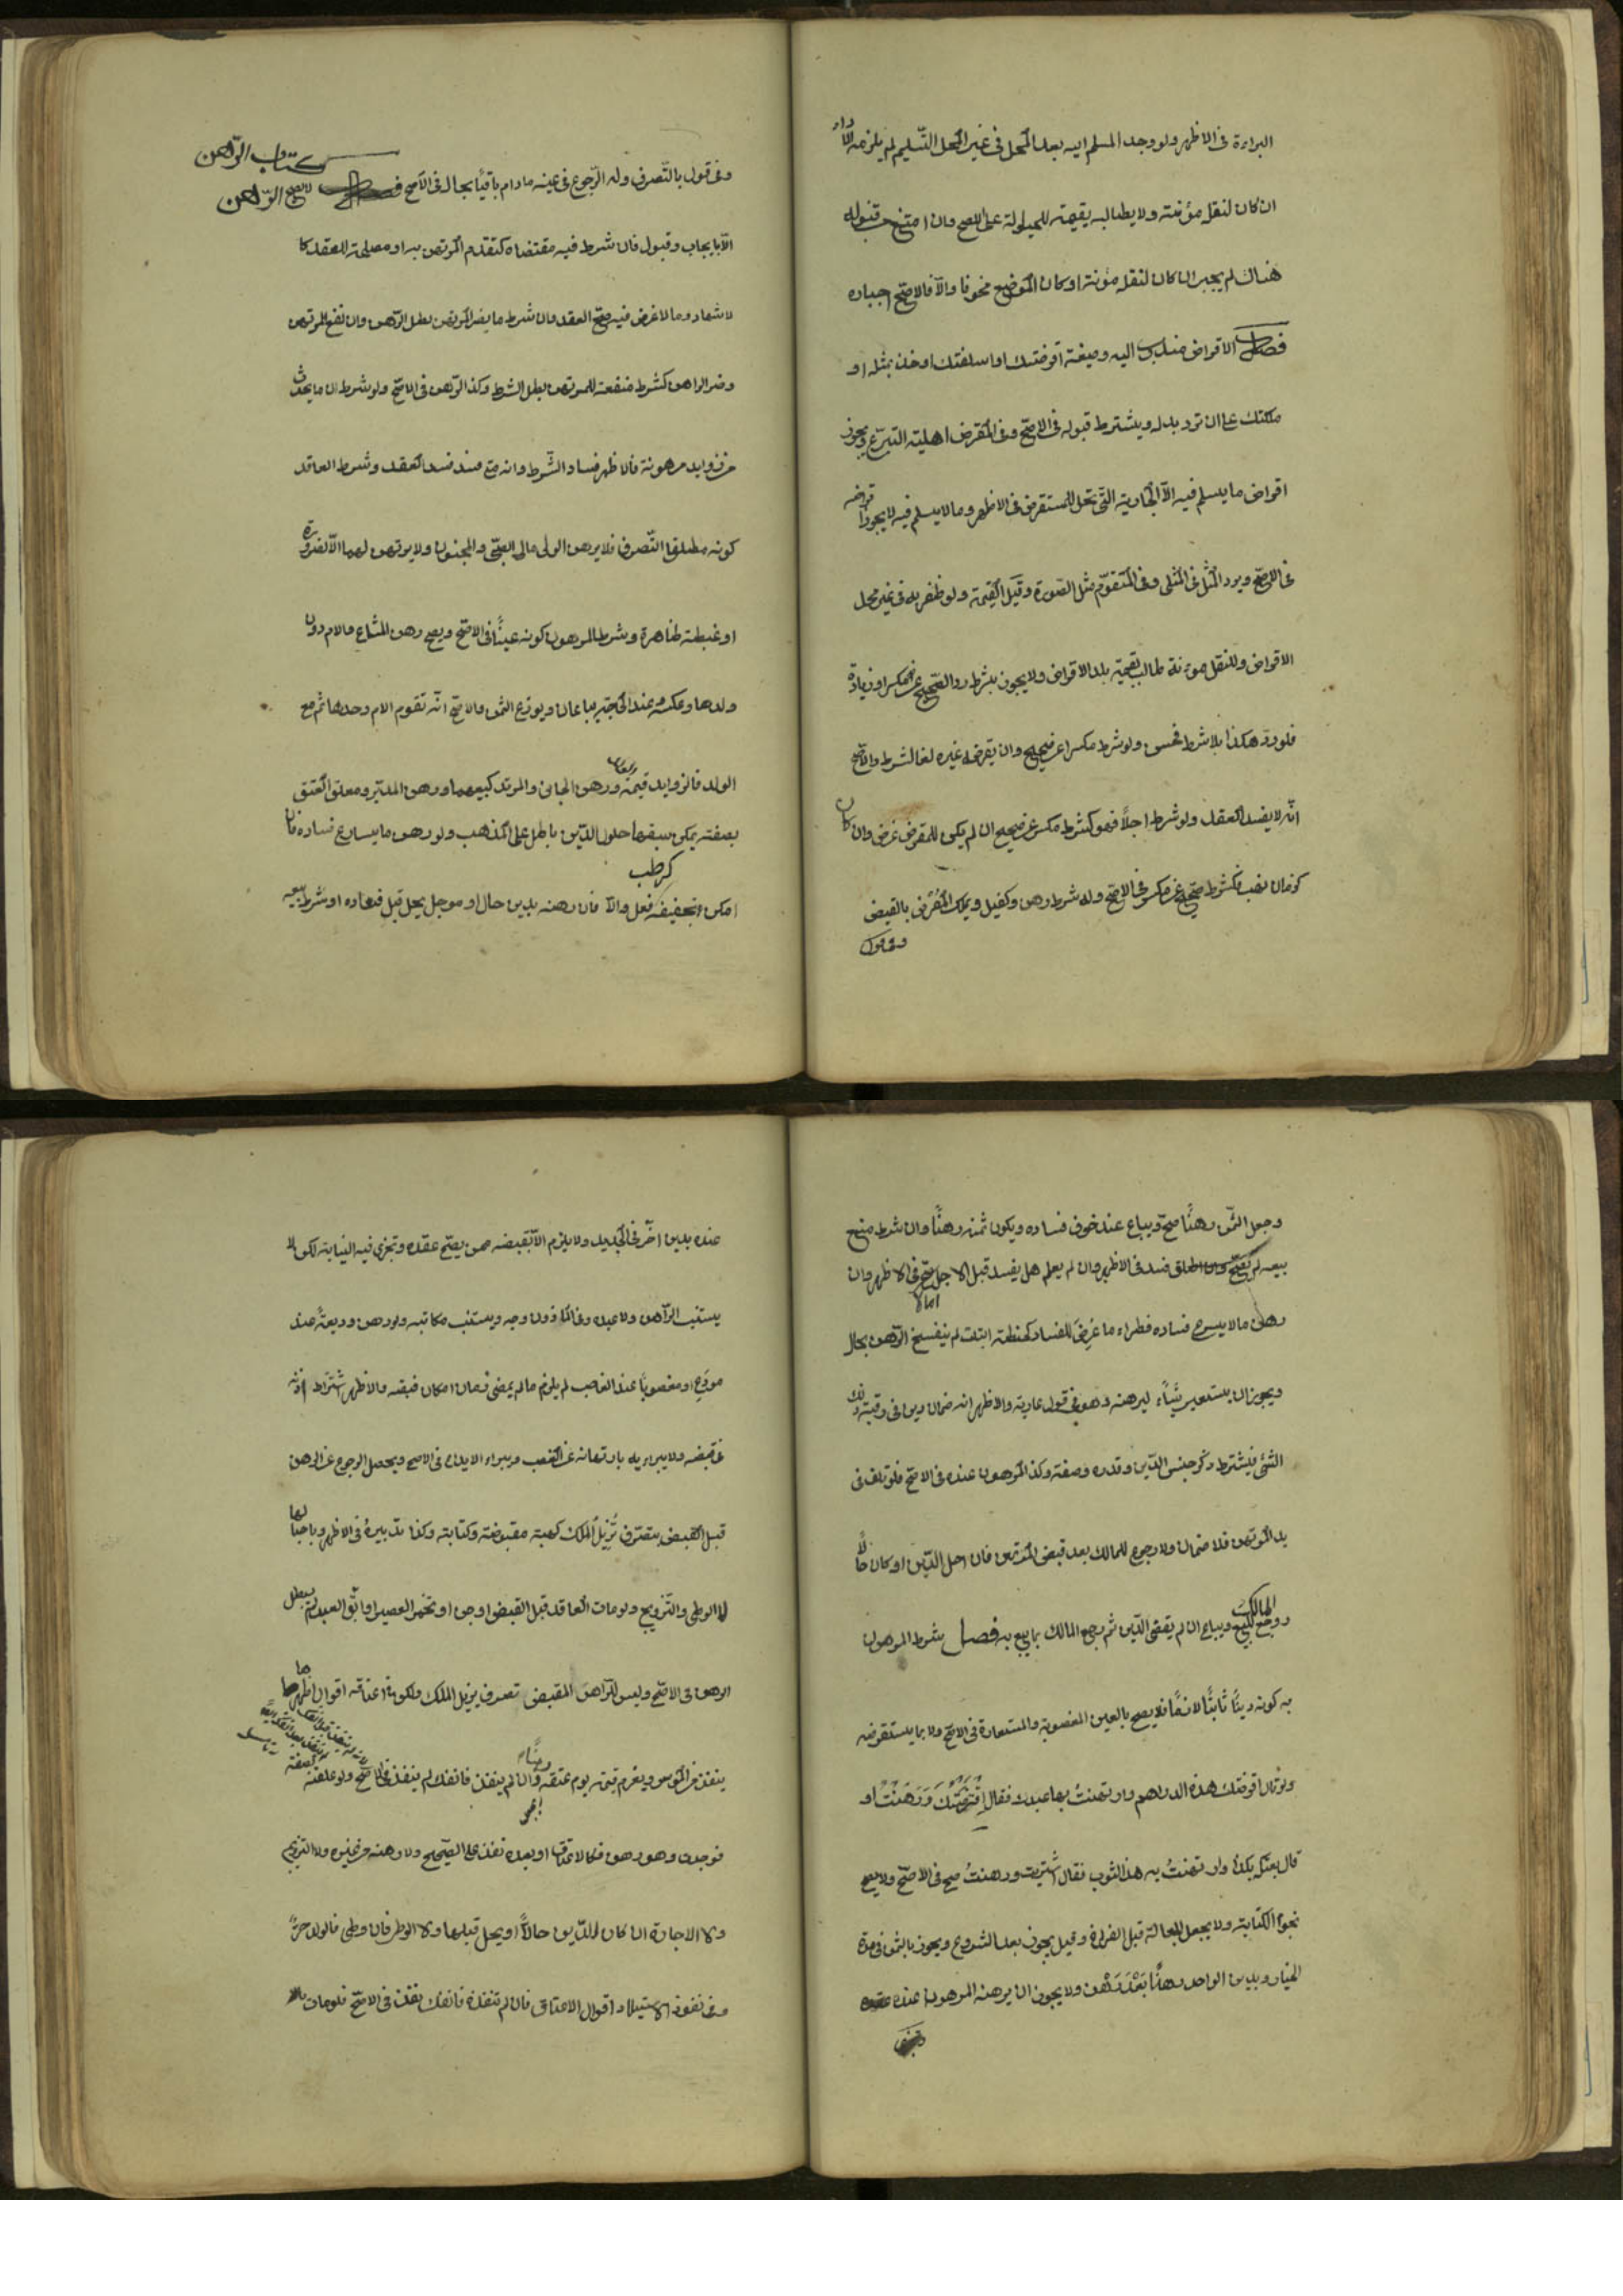 البراءة فى الاظهر ولو وجد المسلم اليه بعد المحل فى غير المحل التّسليم لم يلزمه الاداء
ان كان لنقله مؤنته ولا يطالبه بقيمته للحيلولة على الصح وان امتنع من قبوله
هناك لم يجبر ان كان لنقله مؤنة او كان الموضع مخوفا والاّ فالاصحّ اجباره
فصل الاقراض مندوب اليه وصيغته اقرضتك او اسلفتك او خذه بمثله او
ملكتك على ان ترد بدله ويشترط قبوله فى الاصحّ وفى المقرض اهلية التبرّع ويجوز
اقراض ما يسلم فيه الاّ الجارية التّى تحل للمستقرض فى الاظهر وما لا يسلم فيه لا يجوز اقراضه
فى الاصحّ ويرد المثل فى المثلى وفى المتقوّم مثل الصّورة وقيل القيمة ولو ظفر به فى غير محل
الاقراض وللنقل مؤنة طالب بقيمة بلد الاقراض ولا يجوز بشرط رد الصّحيح عن مكسر او زيادة
فلو ردّ هكذا بلا شرط فحسن ولو شرط مكسرا عن صحيح وان يقرضه غيره لغا الشرط والاصّح
انّه لا يفسد العقد ولو شرط اجلاً فهو كشرط مكسر عن صحيح ان لم يكن للمقرض غرض وان كان
كزمان نهب فكشرط صحّيح عن مكسر فى الاصحّ وله شرط رهن وكفيل ويملك القرض بالقبض
وفى قول
كتاب الرّاهن
وفى قول بالتّصرف وله الرّجوع فى عينه مادام باقيًا بحاله فى الاصح لا يصح الرّاهن
الاّ بايجاب وقبول فان شرط فيه مقتضاه كتقدم المرتهن به او مصلحة للعقد كا
لاشهاد وما لا غرض فيه صحّ العقد وان شرط ما يضر المرتهن بطل الرّهن وان نفع المرتهن
وضر الراهن كشرط منفعته للمرتهن بطل الشرط وكذا الرّهن فى الاصحّ ولو شرط ان ما يحدث
من زوايد مرهونة فالاظهر فساد الشّرط وانه متى فسد فسد العقد وشرط العاقد
كونه مطلق التّصرف فلا يرهن الولى مال الصّبى والمجنون ولا يرتهن لهما الاّ لضرورة
او غبطة ظاهرة وشرط المرهون كونه عينًا فى الاصحّ ويصح رهن المشاع والام دون
ولدها وعكسه وعند الحاجة يباعان ويوزع الثمن والاصح انّه تقوم الام وحدها ثم مع
الولد فالزوايد قيمته ورهن الجانى والمرتد كبيعهما ورهن المدبّر ومعلق العتق
بصفة يمكن سبقها حلول الدّين باطل على المذهب ولو رهن ما يسارع فساده فان
كرطب
امكن تجفيفه فعل والاّ فان رهنه بدين حال او موجل يحل قبل فساده او شرط بيعه
وجعل الثّمن رهنًا صحّ ويباع عند خوف فساده ويكون ثمنه رهنًا وان شرط منع
بيعه لم يصحّ وان اطلق فسد فى الاظهر وان لم يعلم هل يفسد قبل الاجل صحّ فى الاظهر وان
رهن مالا يسرع فساده فطراء ما عُرِضَ للفساد كحنطة ابتلت لم ينفسخ الرّهن بحال
ويجوز ان يستعير شيئًاء ليرهنه وهو فى قول عارية والاظهر انه ضمان دين فى رقبة ذلك
الشئ فيشترط ذكر جنس الدّين وقدره وصفته وكذا المرهون عنده فى الاصّح فلو تلف فى
يد المرتهن فلا ضمان ولا رجوع للمالك بعد قبض المرتهن فان احل الدّين او كان حالاًّ
روجع المالك للبيع ويباع ان لم يقض الدّين ثم رجع المالك بما بيع به فصل بشرط المرهون
به كونه دينًا ثابتًا لازمًا فلا يصح بالعين المغصوبة والمستعارة فى الاصحّ ولا بما يستقرضه
ولو قال اقرضتك هذه الدراهم وارتهنتُ بها عبدك فقال اقترضتك وَرَهَنتُ او
قال بعتكه بكذا وارتهنتُ به هذا الثوب فقال اشتريت ورهنتُ صح فى الاصحّ ولا يصح
نجوم الكتابة ولا بجعل الجعالة قبل الفراغ وقيل يجوز بعد الشروع ويجوز بالثمن فى مدة
الخيار وبدين الواحد رهنًا بَعْدَ رَهْنٍ ولا يجوز ان يرهنه المرهون عنده
عنده بدين آخَر فى الجديد ولا يلزم الاّ بقبضه ممن يصّح عقده وتجزى فيه النيابة لكن لا
يستنيب الرّاهن ولا عبده وفى الماذون وجه ويستنب مكاتبه ولو رهن وديعةً عند
مودَع او مغصوبًا عند الغاصب لم يلزم ما لم يمض زمان امكان قبضه والاظهر اشتراط اذنه
فى قبضه ولا يبراء به بارتهانه عن الغصب ويبراء الايداع فى الاصح ويحصل الرجوع عن الرهن
قبل القبض بتصّرف يُزيلُ الملك كهبة مقبوضة وكتابة وكذا تدبيرهُ فى الاظهر وباحبالها
لا الوطى والتّزويج ولو مات العاقد قبل القبض او جن او تخمر العصير او ابَق العبد لم يبطل
الرهن فى الاصّح وليس للرّاهن المقبض تصرف يزيل الملك ولكن فى اعتاقه اقوال اظهرها
ينفذ من الموسر ويغرم قيمته يوم عتقه رهنًا وان لم ينفذ فانفك لم ينفذ فى الاصّح ولو علقه بصفة
فوجدت وهو رهن فكالاعتاق او بعده نفذ على الصّحيح ولا رهنه من غيره ولا التزويج
ولا الاجارة ان كان الدّين حالاًّ او يحل قبلها ولا الوطى فان وطى فالولد حرٌّ
وفى نفوذ الاستيلاد اقوال الاعتاق فان لم تنفذه فانفك نفذ فى الاصّح فلو مات